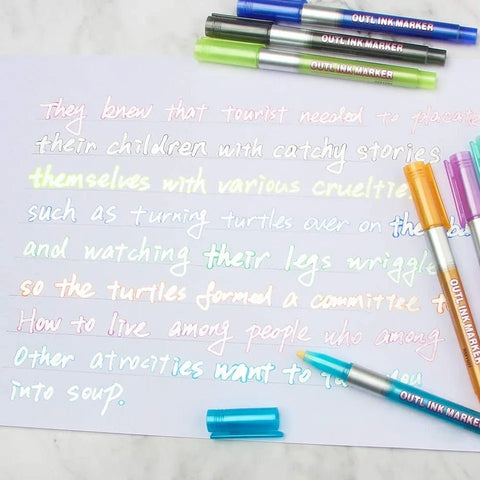 OUTLINK MARKER
OUTLINK MARKER
OUTLINK MARKER
They knew that tourist needed to placate
their children with catchy stories
themselves with various cruelties
such as turning turtles over on the
and watching their legs wriggle
so the turtles formed a committee
How to live among people who among
Other atrocities want to you
into soup.
OUTLINK MARKER
OUTLINK MARKER